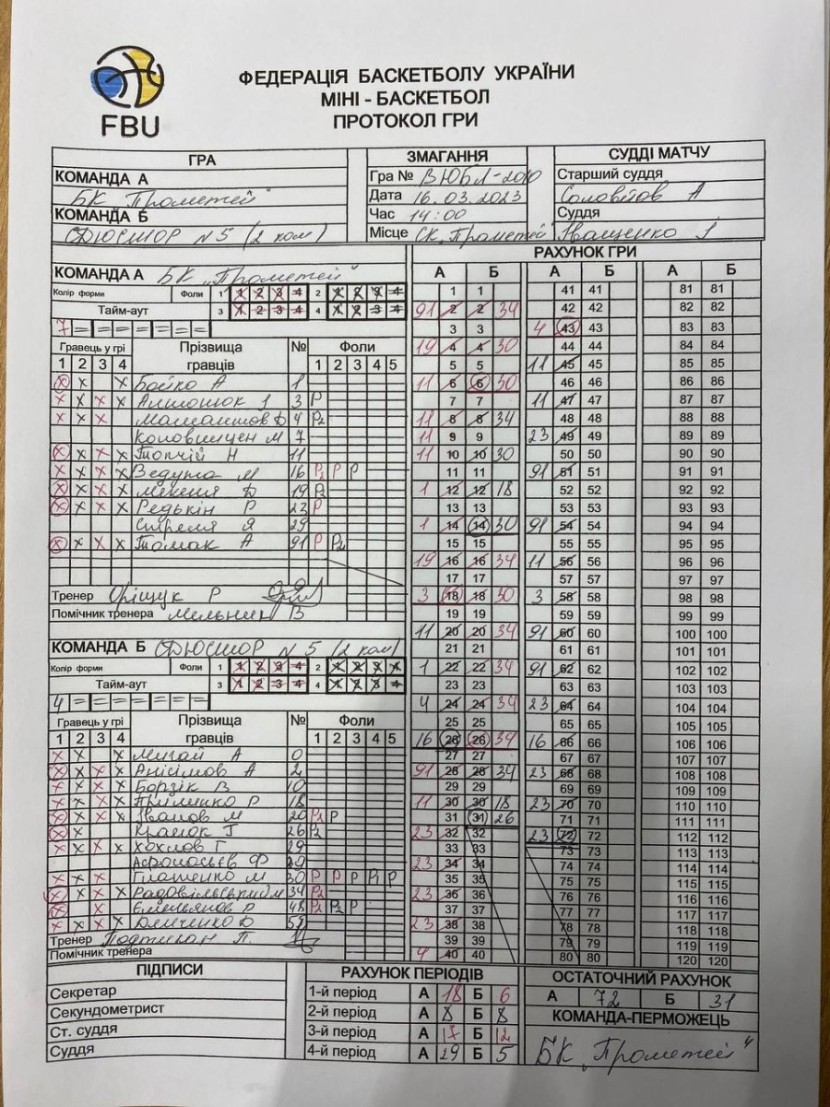 FBU
ФЕДЕРАЦІЯ БАСКЕТБОЛУ УКРАЇНИ
МІНІ - БАСКЕТБОЛ
ПРОТОКОЛ ГРИ
ГРА
КОМАНДА А
БК „Прометей"
КОМАНДА Б
ДЮСШОР №5 (2 ком)
ЗМАГАННЯ
Гра № ВЮБЛ-2010
Дата 16.03.2023
Час 14:00
Місце СК „Прометей"
СУДДІ МАТЧУ
Старший суддя
Соловйов А
Суддя
Іващенко І
КОМАНДА А БК „Прометей"
Колір форми Фоли 1 1 2 3 4 2 1 2 3 4
Тайм-аут 3 1 2 3 4 4 1 2 3 4
7 = = = = = = =
Гравець у грі Прізвища гравців № Фоли
1 2 3 4 1 2 3 4 5
X X X Бойко А 1
X X X X І 3 P
X X X Д 4 P2
М 7
X X X X Топчій Н 11
X X X X Ведута М 16 P1 P P
X X X X Д 19 P2
X X X X Редькін Р 23 P
Стреля Я 29
X X X X Томак А 91 P P2
Тренер Оріщук Р
Помічник тренера Мельник В
КОМАНДА Б ДЮСШОР №5 (2 ком)
Колір форми Фоли 1 1 2 3 4 2 1 2 3 4
Тайм-аут 3 1 2 3 4 4 1 2 3 4
4 = = = = = = =
Гравець у грі Прізвища гравців № Фоли
1 2 3 4 1 2 3 4 5
X X X Мигай А 0
X X X X Анісімов А 2
X X X X Борзік В 10
X X X X Р 18
X X X X Іванов М 20 P1 P
X X X Г 26 P2
X X X X Хохлов Г 29
Ф 29
X X X М 30 P P P P1 P
X X X X 34 P2
X X Ємельянов 48 P2 P2 P
X X X X Д 55
Тренер П.
Помічник тренера
РАХУНОК ГРИ
А Б А Б А Б
1 1 41 41 81 81
91 2 2 34 42 42 82 82
3 3 4 43 43 83 83
19 4 4 30 44 44 84 84
5 5 11 45 45 85 85
11 6 6 30 46 46 86 86
7 7 11 47 47 87 87
11 8 8 34 48 48 88 88
11 9 9 23 49 49 89 89
11 10 10 30 50 50 90 90
11 11 91 51 51 91 91
1 12 12 18 52 52 92 92
13 13 53 53 93 93
1 14 14 30 91 54 54 94 94
15 15 55 55 95 95
19 16 16 34 11 56 56 96 96
17 17 57 57 97 97
3 18 18 30 3 58 58 98 98
19 19 59 59 99 99
11 20 20 34 91 60 60 100 100
21 21 61 61 101 101
1 22 22 34 91 62 62 102 102
23 23 63 63 103 103
4 24 24 34 23 64 64 104 104
25 25 65 65 105 105
16 26 26 34 16 66 66 106 106
27 27 67 67 107 107
91 28 28 34 23 68 68 108 108
29 29 69 69 109 109
11 30 30 18 23 70 70 110 110
31 31 26 71 71 111 111
23 32 32 23 72 72 112 112
33 33 73 73 113 113
23 34 34 74 74 114 114
35 35 75 75 115 115
23 36 36 76 76 116 116
37 37 77 77 117 117
23 38 38 78 78 118 118
39 39 79 79 119 119
4 40 40 80 80 120 120
ПІДПИСИ
Секретар
Секундометрист
Ст. суддя
Суддя
РАХУНОК ПЕРІОДІВ
1-й період А 18 Б 6
2-й період А 8 Б 8
3-й період А 17 Б 12
4-й період А 29 Б 5
ОСТАТОЧНИЙ РАХУНОК
А 72 Б 31
КОМАНДА-ПЕРЕМОЖЕЦЬ
БК „Прометей"